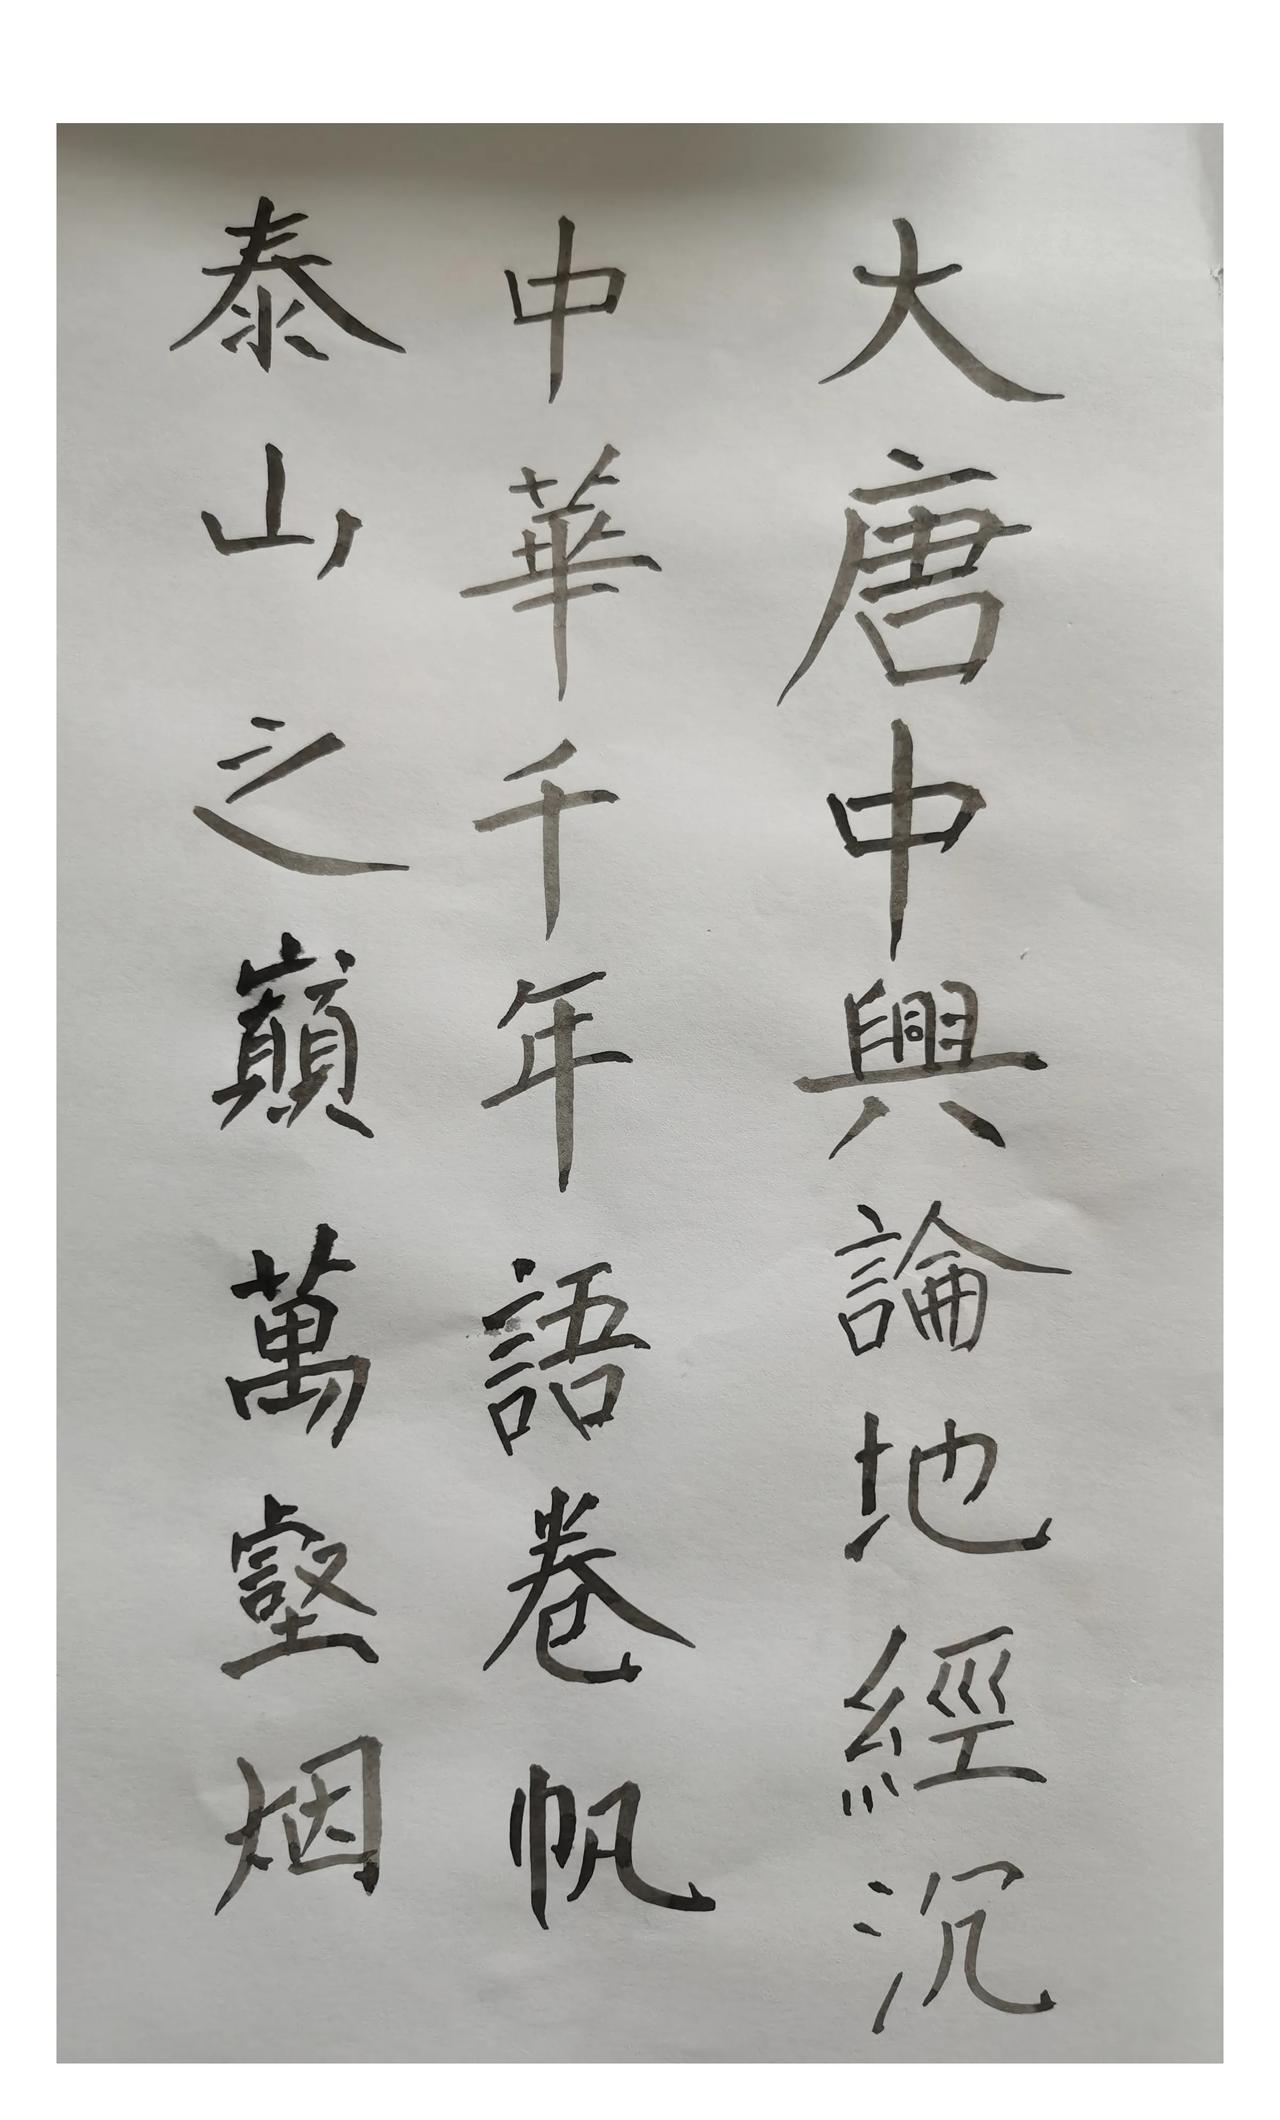 大唐中興論地經沉
中華千年語卷帆
泰山之巔萬壑烟